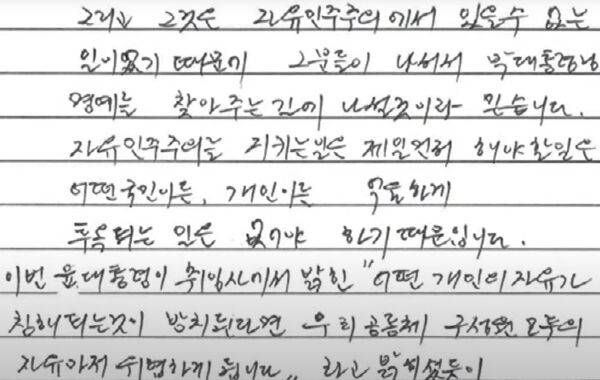 그러나 그것은 자유민주주의에서 있을수 없는
일이었기 때문에 그분들이 나서서 박대통령님
명예를 찾아주는길에 나설것이라 믿습니다.
자유민주주의를 지키는분은 제일먼저 해야할일은
어떤국민이든, 개인이든 억울하게
투옥되는 일은 없어야 하기때문입니다.
이번 윤대통령이 취임사에서 밝힌 "어떤 개인의 자유가
침해되는것이 방치된다면 우리 공동체 구성원 모두의
자유마저 위협하게 됩니다" 라고 밝히셨듯이